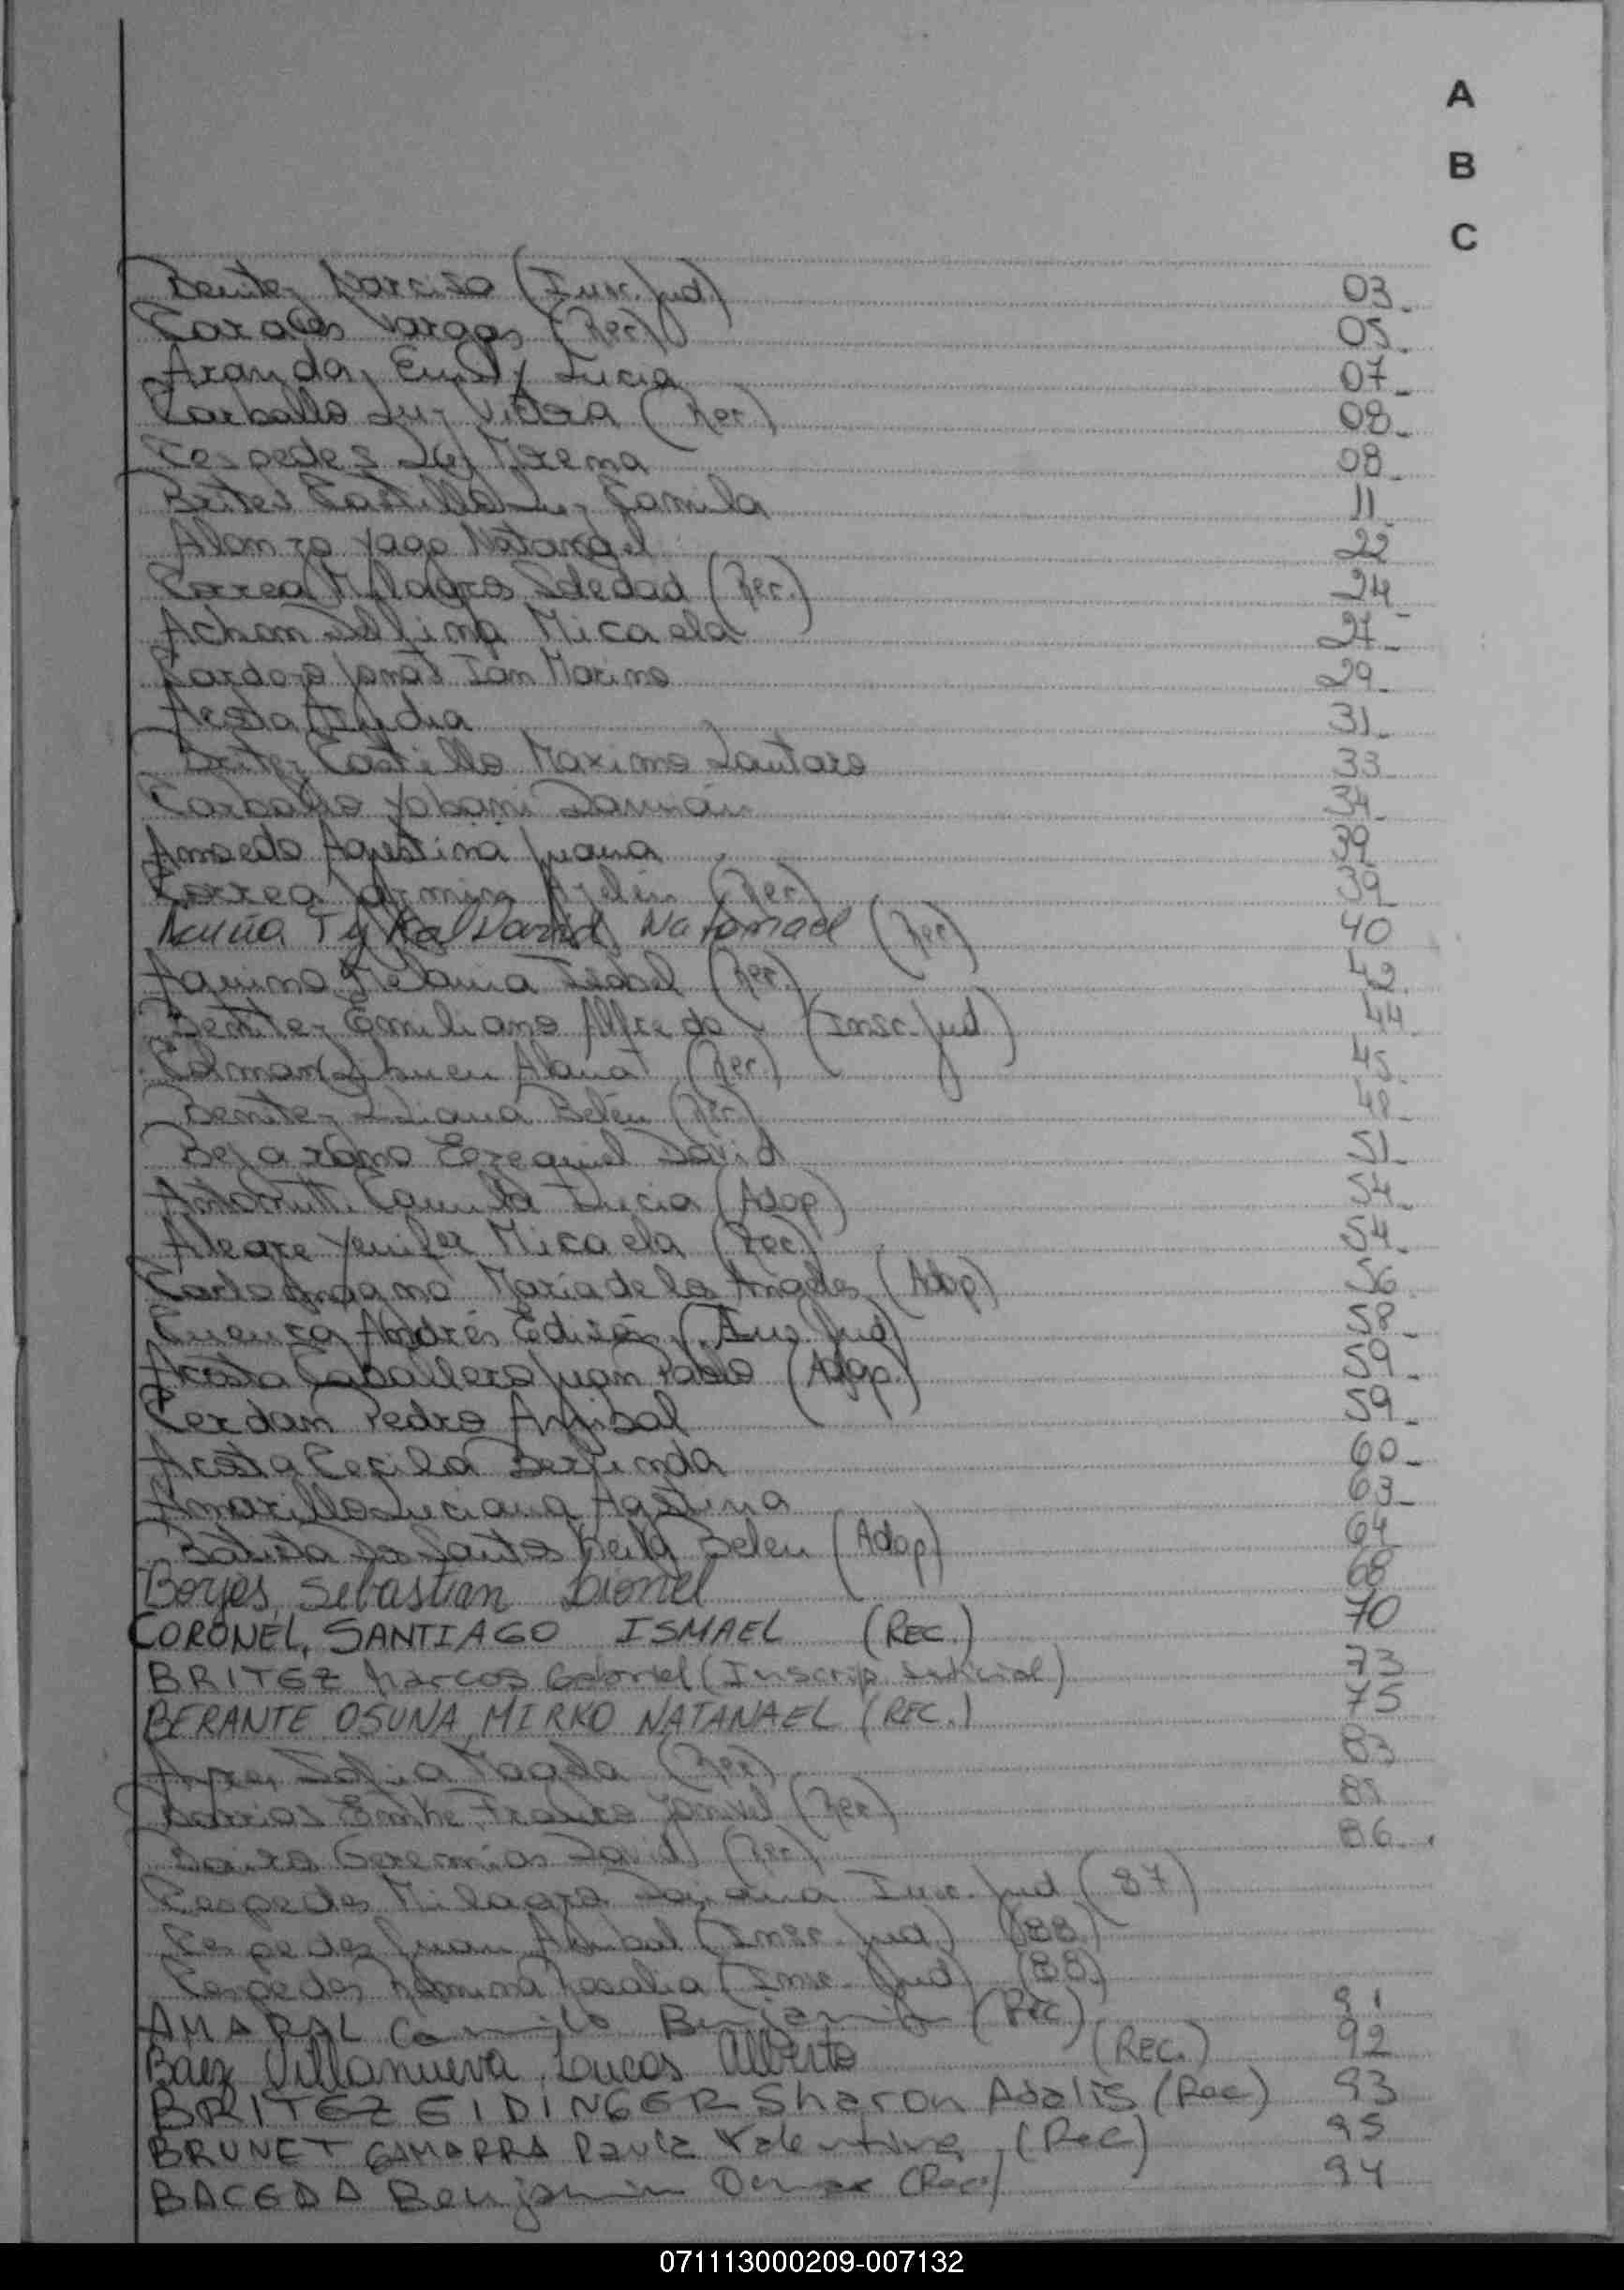 A
B
C
Benitez Narciso (Insc. Jud.) 03
Vargas (Rec.) 05
Aranda, Emily Lucia 07
Carballo Luz (Rec.) 08
Cespedes Luz Morena 08
Britez Castillo Luz Camila 11
Alonzo Yago Natanael 22
Correa Milagros Soledad (Rec.) 24
Achon Delfina Micaela 27
Cardozo Jonas Ian Marino 29
Acosta Lydia 31
Britez Castillo Maximo Lautaro 33
Carballo Yohani Damián 34
Amoedo Agustina Juana 39
Correa Jazmin Ayelen (Rec.) 39
Acuña David Natanael (Rec) 40
Aquino Melania Isabel (Rec.) 42
Benitez Emiliano Alfredo (Insc. Jud) 44
Colman (Rec.) 45
Benitez Liliana Belén (Rec) 48
Bejarano Ezequiel David 51
Camila Lucia (Adop) 54
Alegre Yenifer Micaela (Rec.) 54
Maria de los Angeles (Adop) 56
Cuenca Andrés Edison (Ins. Jud) 58
Acosta Caballero Juan Pablo (Adop.) 59
Cerdan Pedro Anibal 59
Acosta Cecilia 60
Amarillo Luciana Agustina 63
Batista Dos Santos Keila Belen (Adop) 64
Borges, Sebastian Lionel 68
CORONEL, SANTIAGO ISMAEL (REC.) 70
BRITEZ Marcos Gabriel (Inscrip. Judicial) 73
BERANTE OSUNA, MIRKO NATANAEL (REC.) 75
Sofia Magda (Rec) 83
Barrios (Rec)
David (Rec) 86
Cespedes Milagros Insc. Jud (87)
Cespedes Juan Anibal (Insc. Jud.) (88)
Cespedes Romina Rosalia (Insc. Jud) (88)
AMARAL Camilo Benjamin (Rec) 91
Baez Villanueva, Loucas Alberto (REC.) 92
BRITEZ EIDINGER Sharon Adalis (Rec) 93
BRUNET GAMARRA Paula Valentina (Rec) 95
BACEDA Benjamin Omar (Rec) 94
071113000209-007132